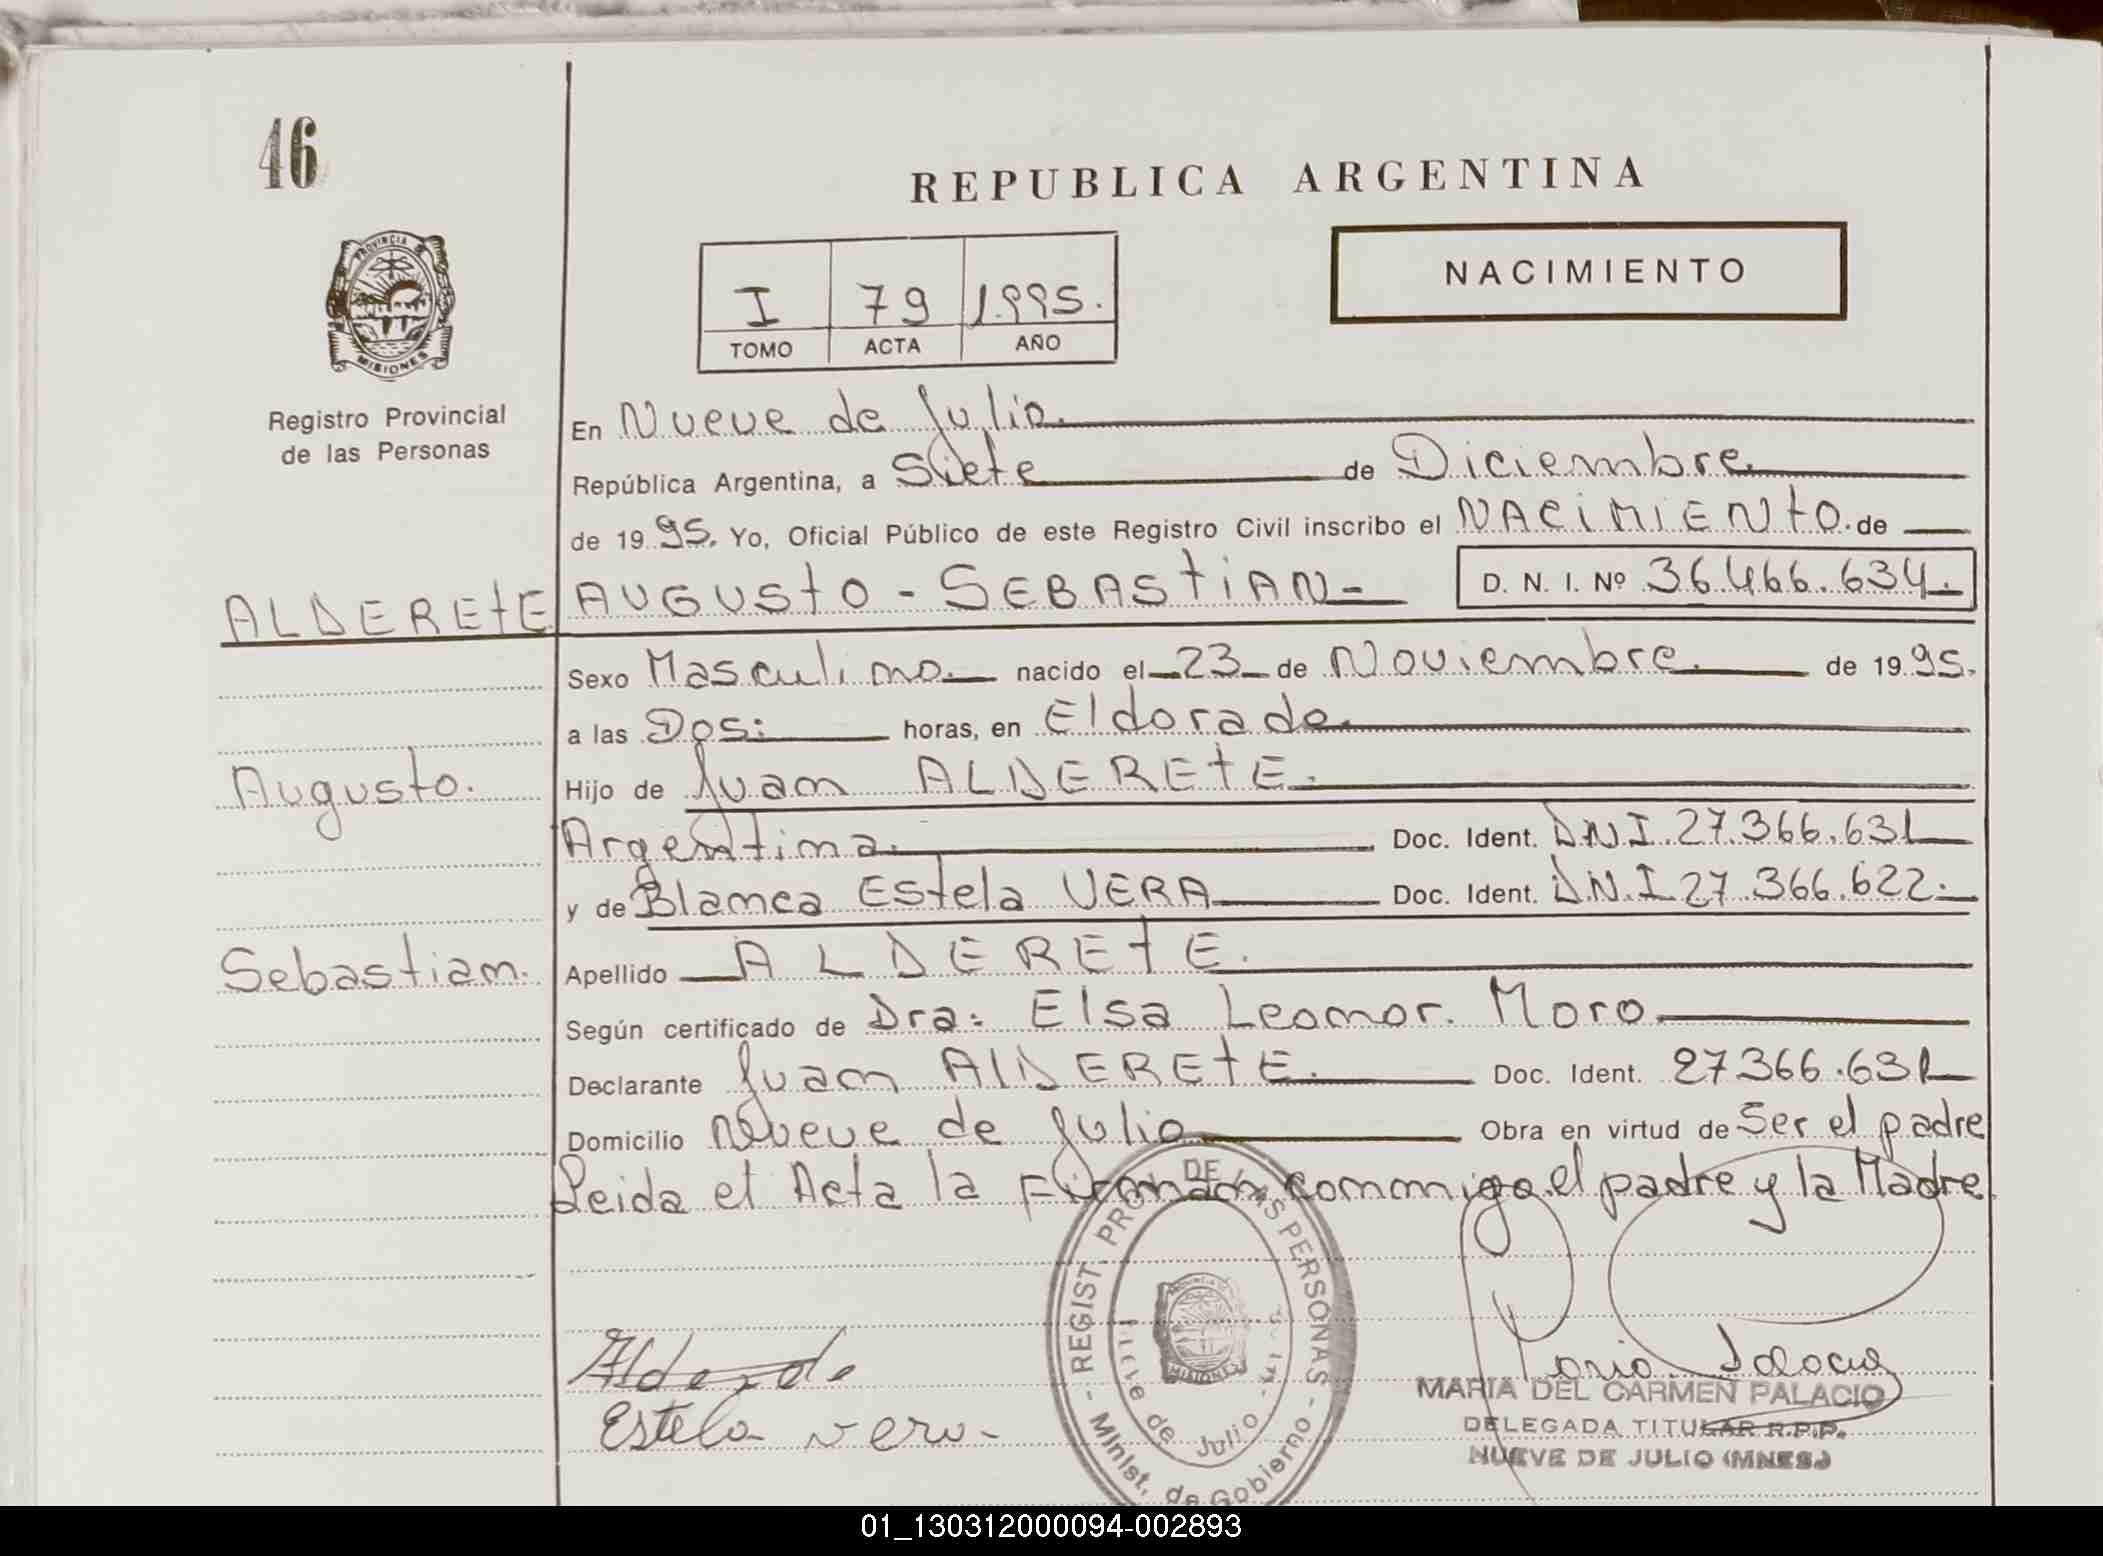 46
REPUBLICA ARGENTINA
PROVINCIA DE
MISIONES
Registro Provincial
de las Personas
I 79 1.995.
TOMO ACTA AÑO
NACIMIENTO
En Nueve de Julio.
República Argentina, a Siete de Diciembre
de 19 95. Yo, Oficial Público de este Registro Civil inscribo el NACIMIENTO. de
ALDERETE AUGUSTO - SEBASTIAN- D. N. I. Nº 36.466.634.
Sexo Masculino. nacido el 23 de Noviembre. de 19 95.
a las Dos: horas, en Eldorado.
Augusto. Hijo de Juan ALDERETE.
Argentina. Doc. Ident. DNI.27.366.631
y de Blanca Estela VERA Doc. Ident. D.N.I 27.366.622.
Sebastian. Apellido ALDERETE.
Según certificado de Dra: Elsa Leonor. Moro
Declarante Juan AlDERETE. Doc. Ident. 27366.631
Domicilio Nueve de Julio Obra en virtud de Ser el padre
Leida el Acta la Firman conmigo.el padre y la Madre
REGIST. PROV. DE LAS PERSONAS
Nueve de Julio - Mnes.
MISIONES
Minist. de Gobierno
Estela vera-
Maria Palacio
MARIA DEL CARMEN PALACIO
DELEGADA TITULAR R.P.P.
NUEVE DE JULIO (MNES.)
01_130312000094-002893